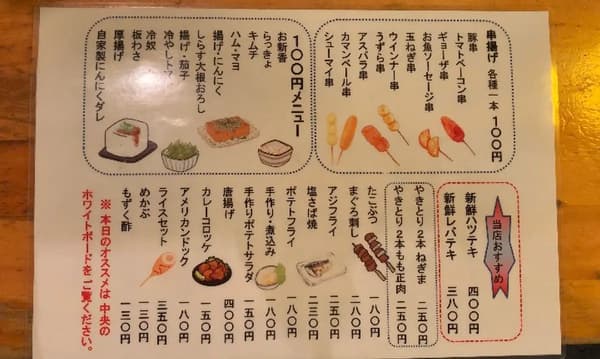 串揚げ 各種一本 100円
豚串
トマトベーコン串
ギョーザ串
お魚ソーセージ串
玉ねぎ串
ウインナー串
うずら串
アスパラ串
カマンベール串
シューマイ串
100円メニュー
お新香
らっきょ
キムチ
ハム・マヨ
揚げ・にんにく
しらす大根おろし
揚げ・茄子
冷やしトマ
冷奴
板わさ
厚揚げ
自家製にんにくダレ
当店おすすめ
新鮮ハツテキ 四〇〇円
新鮮レバテキ 三八〇円
やきとり2本 ねぎま 二五〇円
やきとり2本 もも正肉 二五〇円
たこぶつ 一八〇円
まぐろ刺し 二八〇円
アジフライ 二五〇円
塩さば焼 二三〇円
ポテトフライ 一八〇円
手作り・煮込み 一八〇円
手作りポテトサラダ 一五〇円
唐揚げ 四〇〇円
カレーコロッケ 一五〇円
アメリカンドック 一八〇円
ライスセット 三五〇円
めかぶ 一三〇円
もずく酢 一三〇円
※ 本日のオススメは 中央の
ホワイトボードをご覧ください。